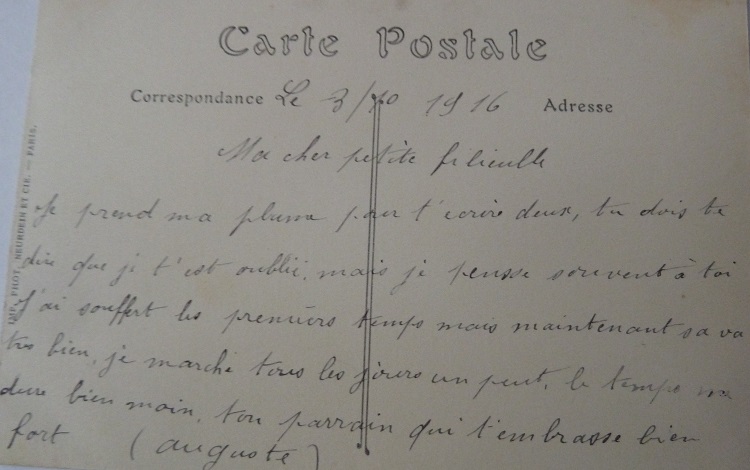 Carte Postale
Correspondance Le 3/10 1916 Adresse
Ma cher petite filieulle
Je prend ma plume pour t'ecrire deux, tu dois te
dire que je t'est oublié, mais je pensse souvent à toi
J'ai souffert les premiers temps mais maintenant sa va
tres bien, je marche tous les jours un peut, le temps me
dure bien moin, ton parrain qui t'embrasse bien
fort (auguste)
IMP. PHOT. NEURDEIN ET CIE. — PARIS.